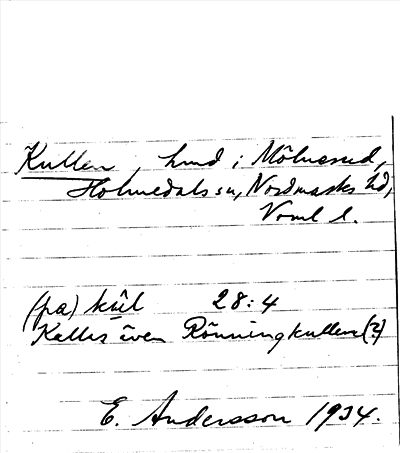 Kullen, hmd i Mölnerud,
Holmedals sn, Nordmarks hd,
Vrml l.
(pa) kul 28:4
Kalles även Rönningkullen (?)
E. Andersson 1934.